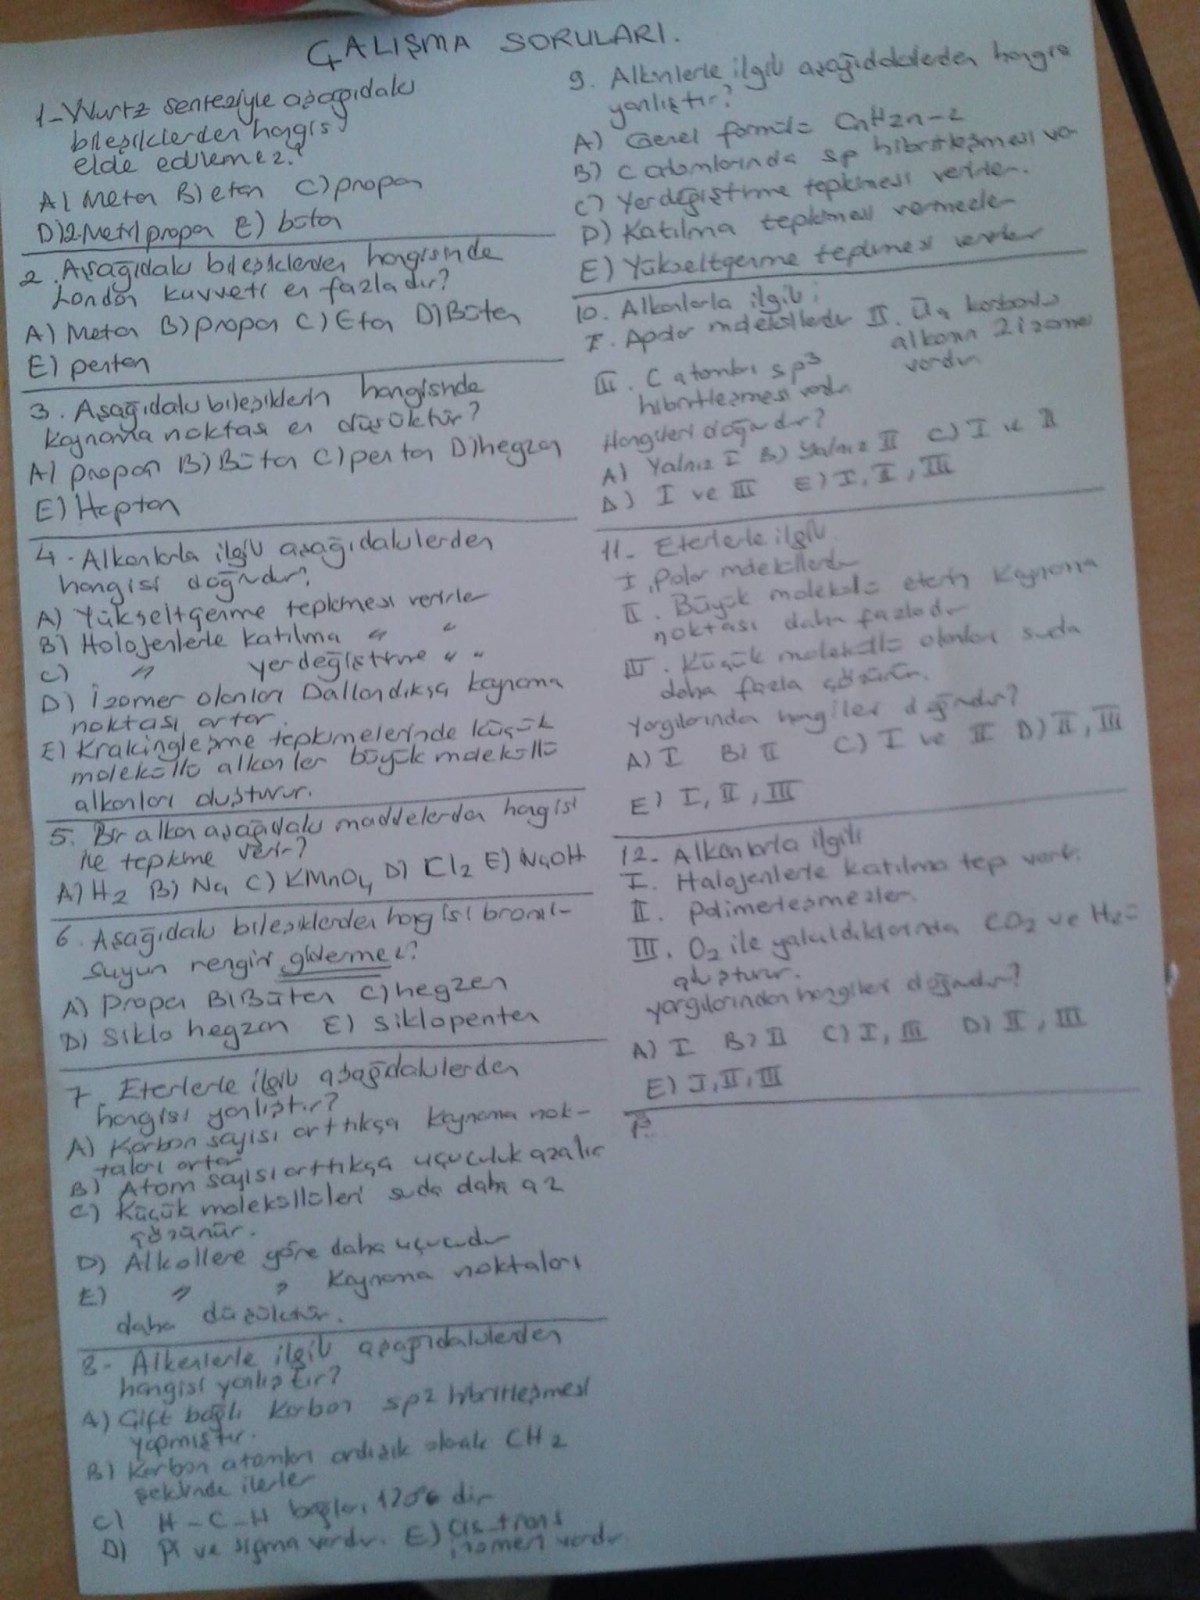 ÇALIŞMA SORULARI.
1-Wurtz senteziyle aşağıdaki
bileşiklerden hangisi
elde edilemez?
A) Metan B) etan C) propan
D) 2-Metil propan E) bütan
2. Aşağıdaki bileşiklerden hangisinde
London kuvveti en fazladır?
A) Metan B) propan C) Etan D) Bütan
E) pentan
3. Aşağıdaki bileşiklerin hangisinde
kaynama noktası en düşüktür?
A) propan B) Bütan C) pentan D) hegzan
E) Heptan
4. Alkanlarla ilgili aşağıdakilerden
hangisi doğrudur?
A) Yükseltgenme tepkimesi verirler
B) Halojenlerle katılma " "
C) " yerdeğiştirme " "
D) İzomer olanları Dallandıkça kaynama
noktası artar.
E) Krakingleşme tepkimelerinde küçük
moleküllü alkanlar büyük moleküllü
alkanları oluşturur.
5. Bir alkan aşağıdaki maddelerden hangisi
ile tepkime verir?
A) H2 B) Na C) KMnO4 D) Cl2 E) NaOH
6. Aşağıdaki bileşiklerden hangisi bromlu
suyun rengini gidermez?
A) Propen B) Büten C) hegzen
D) Siklo hegzan E) siklopenten
7. Eterlerle ilgili aşağıdakilerden
hangisi yanlıştır?
A) Karbon sayısı arttıkça kaynama nok-
taları artar
B) Atom sayısı arttıkça uçuculuk azalır
C) Küçük moleküllüleri suda daha az
çözünür.
D) Alkollere göre daha uçucudur
E) " " Kaynama noktaları
daha düşüktür.
8- Alkenlerle ilgili aşağıdakilerden
hangisi yanlıştır?
A) Çift bağlı karbon sp2 hibritleşmesi
yapmıştır.
B) Karbon atomları ardışık olarak CH2
şeklinde ilerler
C) H-C-H bağları dir
D) pi ve sigma vardır. E) Cis-trans
izomeri vardır.
9. Alkinlerle ilgili aşağıdakilerden hangisi
yanlıştır?
A) Genel formülü CnH2n-2
B) C atomlarında sp hibritleşmesi va-
C) Yerdeğiştirme tepkimesi verirler.
D) Katılma tepkimesi vermezler
E) Yükseltgenme tepkimesi verirler
10. Alkanlarla ilgili;
I. Apolar moleküllerdir II. Üç karbonlu
alkanın 2 izomeri
vardır.
III. C atomları sp3
hibritleşmesi vardır.
Hangileri doğrudur?
A) Yalnız I B) Yalnız II C) I ve II
D) I ve III E) I, II, III
11- Eterlerle ilgili
I. Polar moleküllerdir
II. Büyük moleküllü eterin kaynama
noktası daha fazladır
III. Küçük moleküllü olanları suda
daha fazla çözünür.
Yargılarından hangileri doğrudur?
A) I B) II C) I ve II D) II, III
E) I, II, III
12- Alkanlarla ilgili
I. Halojenlerle katılma tep verir.
II. Polimerleşmezler.
III. O2 ile yakıldıklarında CO2 ve H2O
oluşturur.
yargılarından hangileri doğrudur?
A) I B) II C) I, III D) II, III
E) I, II, III